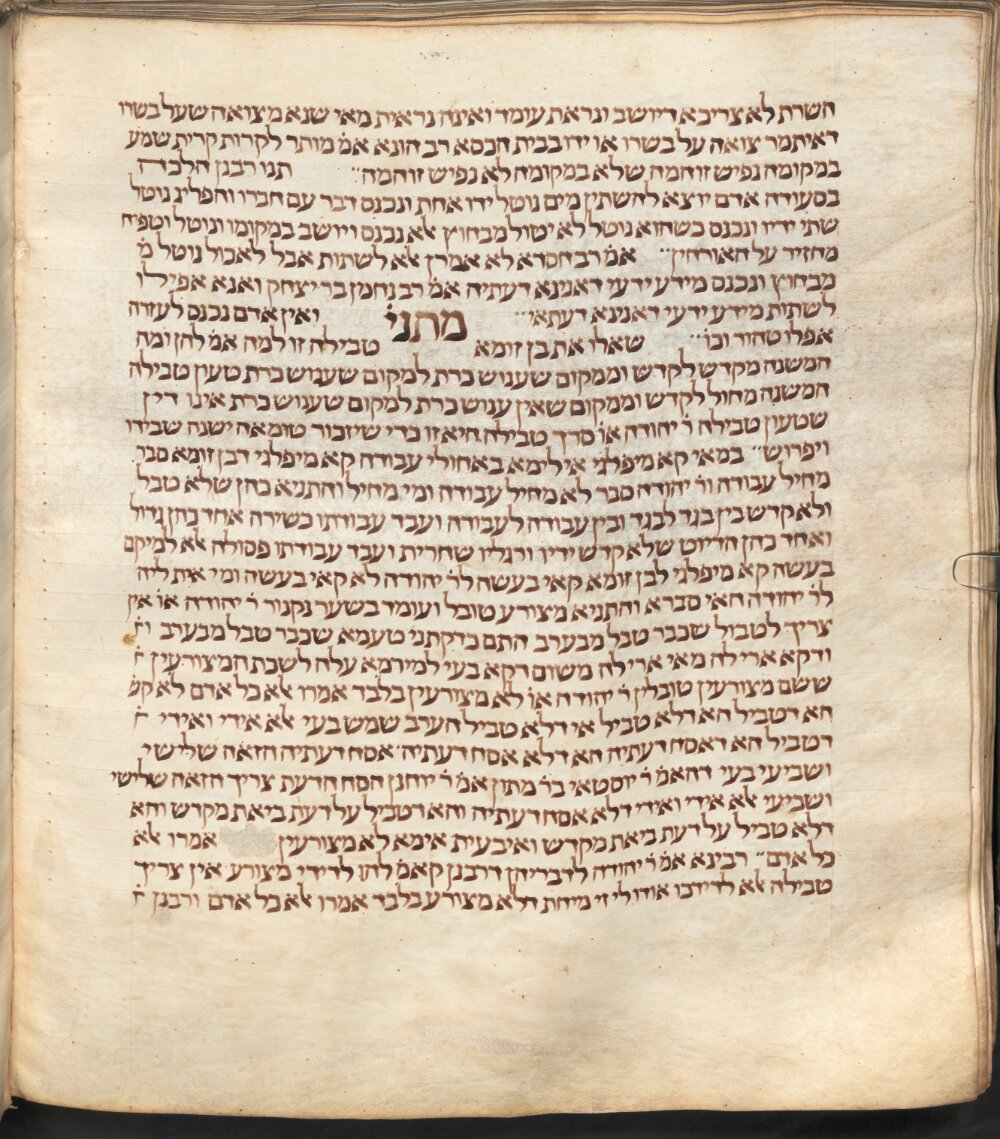 השרת לא צריכא דיושב ונראת עומד ואינה נראית מאי שנא מצואה שעל בשרו
דאיתמר צואה על בשרו או ידו בבית הכסא רב הונא אמ׳ מותר לקרות קרית שמע
במקומה נפיש זוהמה שלא במקומה לא נפיש זוהמה׃ תנו רבנן הלכה
בסעודה אדם יוצא להשתין מים נוטל ידו אחת ונכנס דבר עם חברו והפליג נוטל
שתי ידיו ונכנס כשהוא נוטל לא יטול מבחוץ אלא נכנס ויושב במקומו ונוטל וטפיח
מחזיר על האורחין׃ אמ׳ רב חסדא לא אמרן אלא לשתות אבל לאכול נוטל מ׳
מבחוץ ונכנס מידע ידעי דאנינא דעתיה אמ׳ רב נחמן בר יצחק ואנא אפילו
לשתות מידע ידעי דאנינא דעתאי׃ מתני׳ ואין אדם נכנס לעזרה
אפלו טהור וכו׳׃ שאלו את בן זומא טבילה זו למה אמ׳ להן ומה
המשנה מקדש לקדש וממקום שענוש כרת למקום שענוש כרת טעון טבילה
המשנה מחול לקדש וממקום שאין ענוש כרת למקום שענוש כרת אינו דין
שטעון טבילה ר׳ יהודה או׳ סרך טבילה היא זו כדי שיזכור טומאה ישנה שבידו
ויפרוש׃ במאי קא מיפלגי אילימא באחולי עבודה קא מיפלגי דבן זומא סבר
מחיל עבודה ור׳ יהודה סבר לא מחיל עבודה ומי מחיל והתניא כהן שלא טבל
ולא קדש בין בגד לבגד ובין עבודה לעבודה ועבד עבודתו כשירה אחד כהן גדול
ואחד כהן הדיוט שלא קדש ידיו ורגליו שחרית ועבד עבודתו פסולה אלא למיקם
בעשה קא מיפלגי לבן זומא קאי בעשה לר׳ יהודה לא קאי בעשה ומי אית ליה
לר׳ יהודה האי סברא והתניא מצורע טובל ועומד בשער נקנור ר׳ יהודה או׳ אין
צריך לטבול שכבר טבל מבערב התם כדקתני טעמא שכבר טבל מבערב
ודקא ארי לה מאי ארי לה משום דקא בעי למירמא עלה לשכת המצורעין
ששם מצורעין טובלין ר׳ יהודה או׳ לא מצורעין בלבד אמרו אלא כל אדם לא קש׳
הא דטביל הא דלא טביל אי דלא טביל הערב שמש בעי אלא אידי ואידי
דטביל הא דאסח דעתיה הא דלא אסח דעתיה אסח דעתיה הזאה שלישי
ושביעי בעי דהאמ׳ ר׳ יוסטאי בר׳ מתון אמ׳ ר׳ יוחנן הסח הדעת צריך הזאה שלישי
ושביעי אלא אידי ואידי דלא אסח דעתיה והא דטביל על דעת ביאת מקדש והא
דלא טביל על דעת ביאת מקדש ואיבעית אימא לא מצורעין אמרו אלא
כל אדם׃ רבינא אמ׳ ר׳ יהודה לדבריהן דרבנן קאמ׳ להו לדידי מצורע אין צריך
טבילה אלא לדידכו אודו לי זי מיהת דלא מצורע בלבד אמרו אלא כל אדם ורבנן